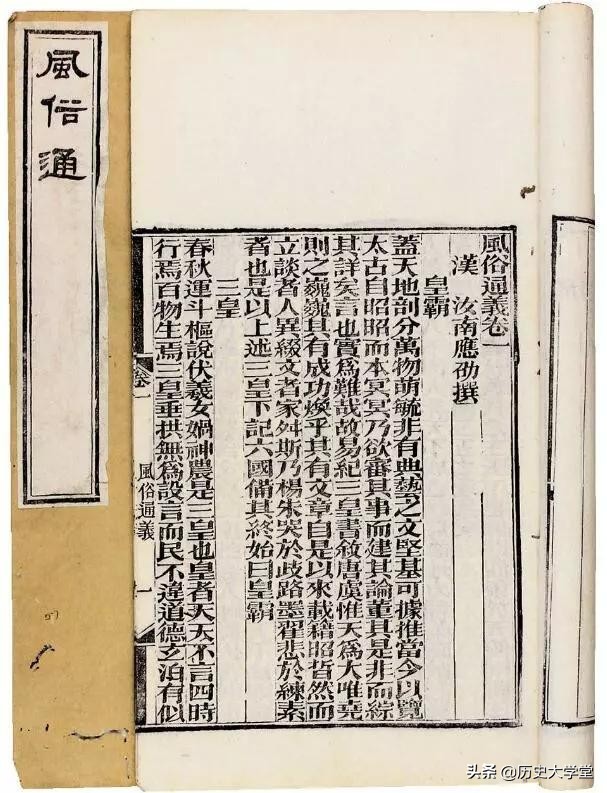 風俗通
風俗通義卷一
漢 汝南應劭撰
皇霸
蓋天地剖分萬物萌毓非有典藝之文堅基可據推當今以覽
太古自昭昭而本冥冥乃欲審其事而建其論董其是非而綜
其詳矣言也實爲難哉故易紀三皇書敘唐虞惟天爲大唯堯
則之巍巍其有成功煥乎其有文章自是以來載籍昭晳然而
立談者人異綴文者家舛斯乃楊朱哭於歧路墨翟悲於練素
者也是以上述三皇下記六國備其終始曰皇霸
三皇
春秋運斗樞說伏羲女媧神農是三皇也皇者天天不言四時
行焉百物生焉三皇垂拱無爲設言而民不違道德玄泊有似
卷一 風俗通義 一
头条 @历史大学堂